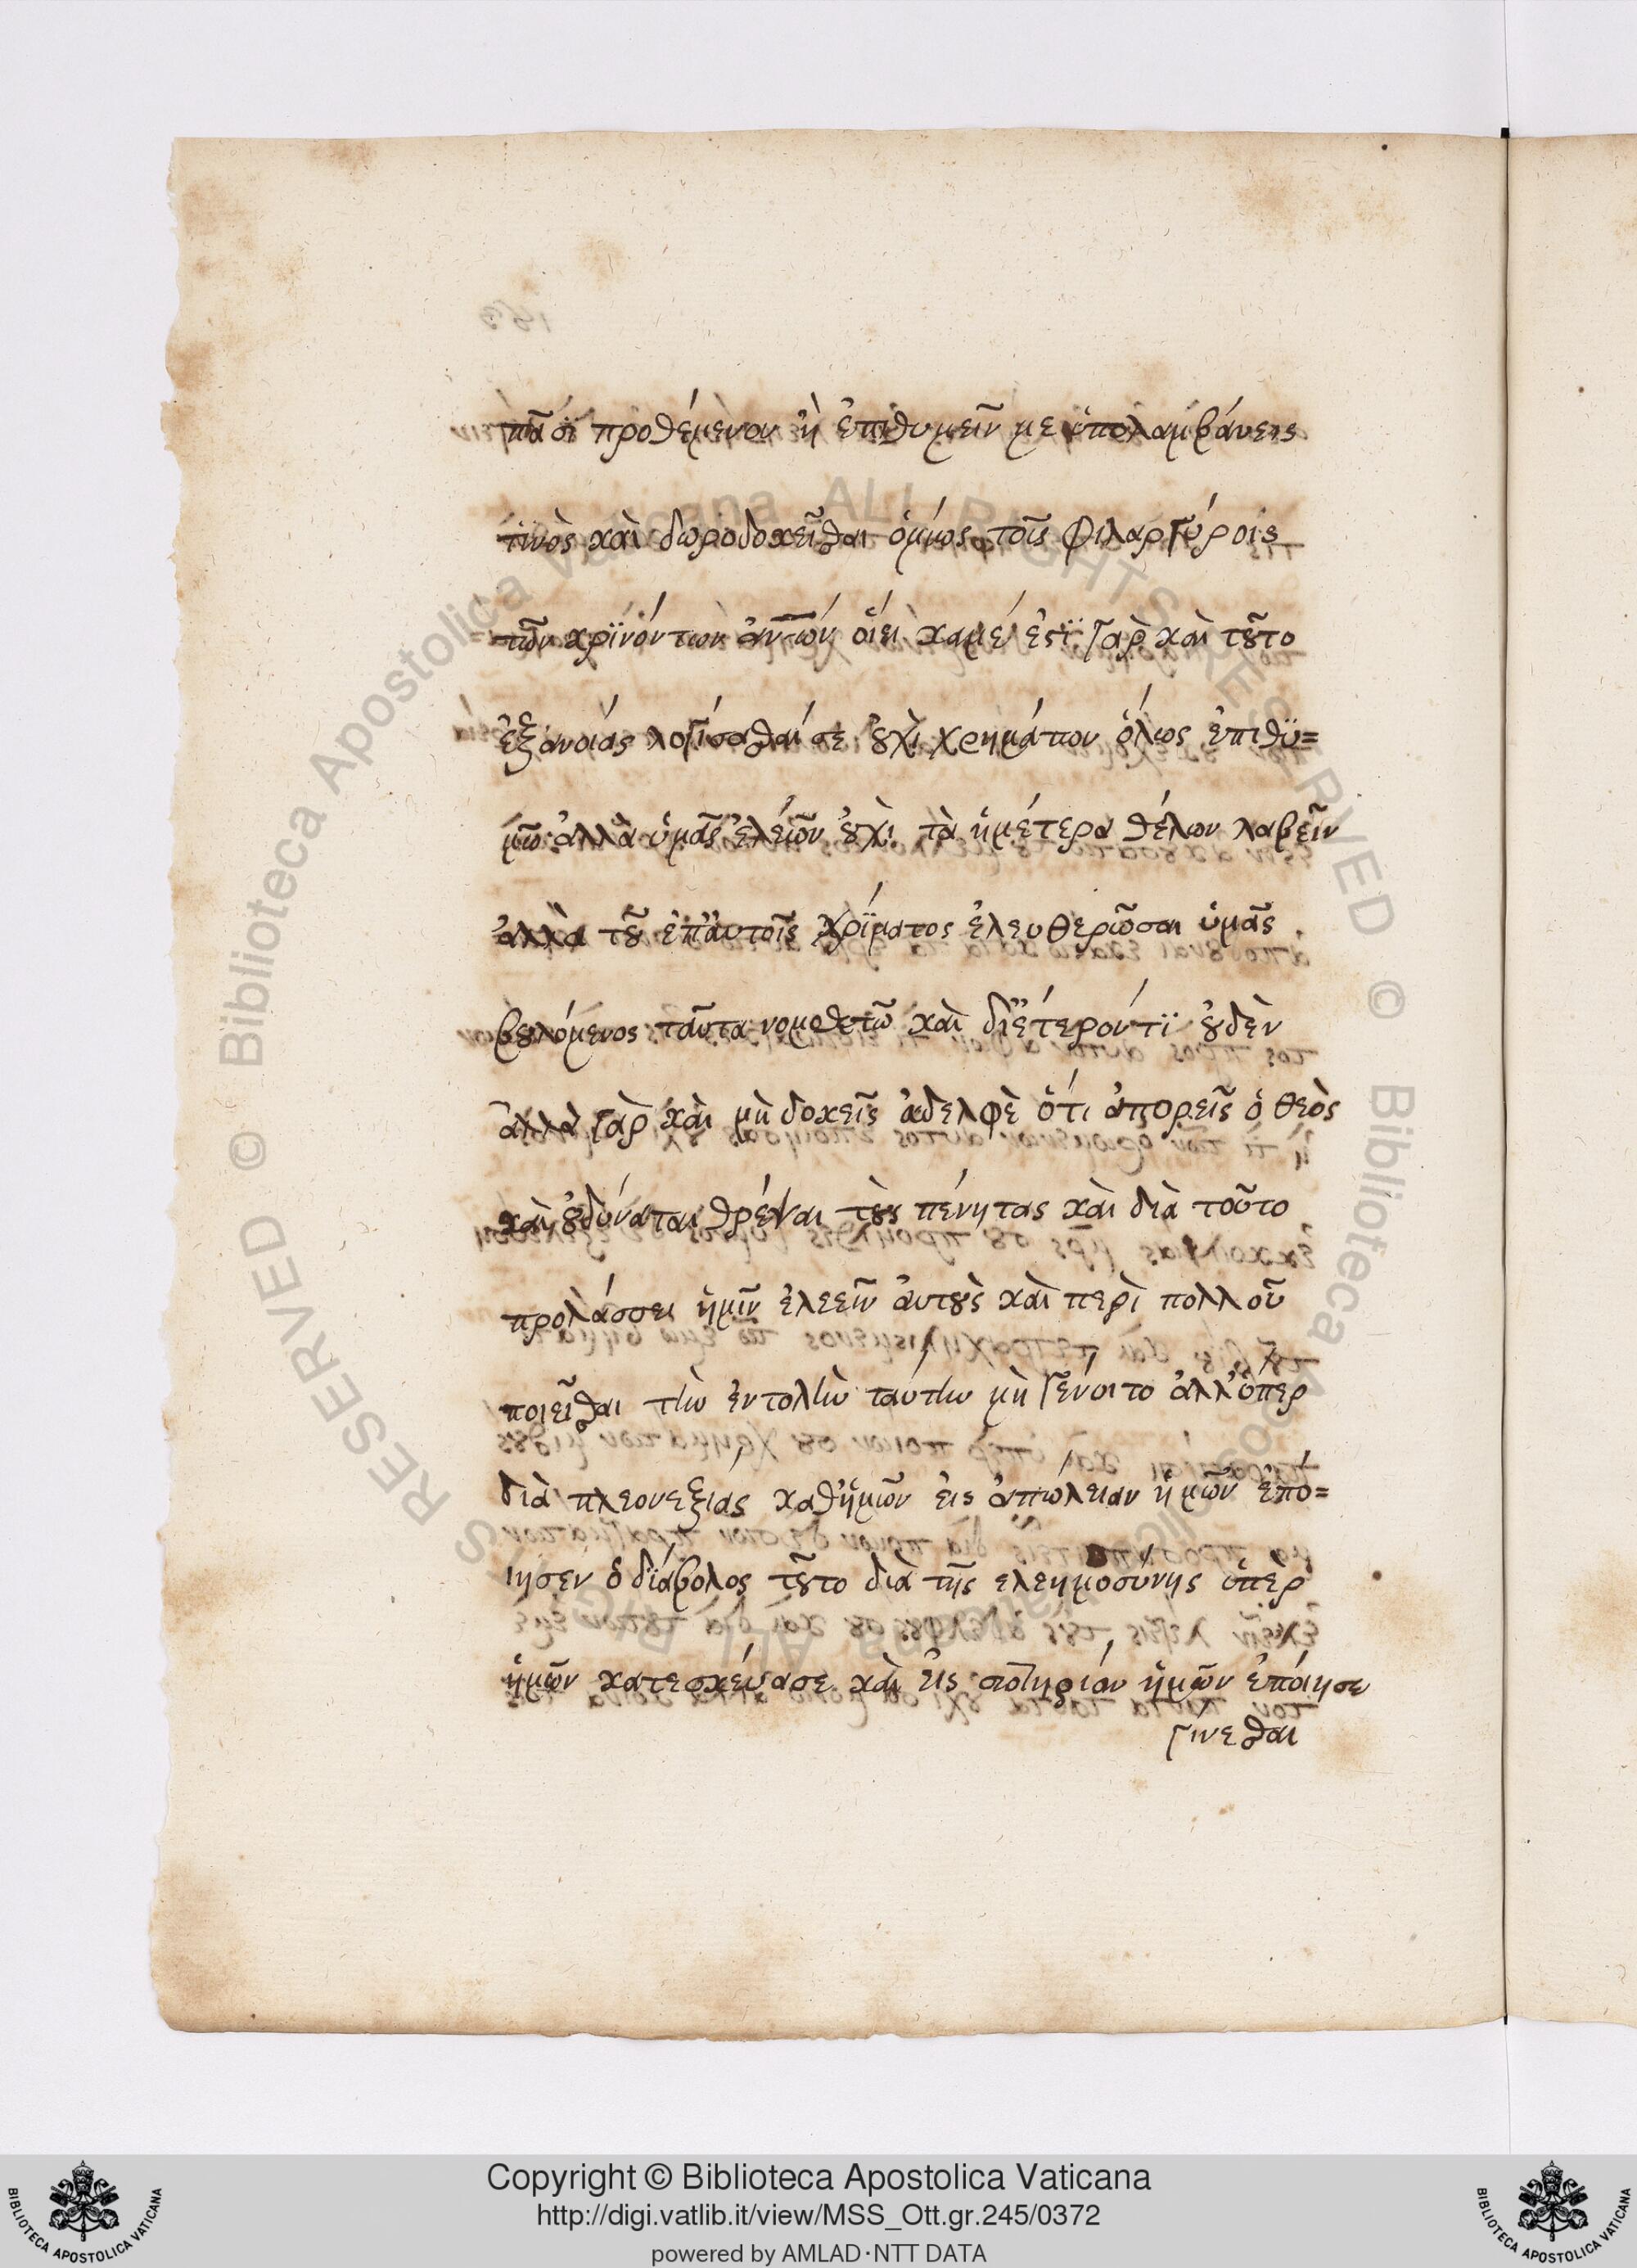 πᾶσϊ προθέμενον ἢ ἐπιθυμεῖν με ὑπολαμβάνεις
τϊνὸς καὶ δωροδοκεῖσθαι ὁμοίως τοῖς φιλαργύροις
τῶν κρϊνόντων ἀντῶν οἴει καμέ ἐστϊ γὰρ καὶ τοῦτο
ἐξ ἀνοιάς λογίσασθαί σε οὐχὶ χρημάτων ὅλως ἐπιθϋ=
μῶ ἀλλὰ ὑμᾶς ἐλεῶν οὐχὶ τὰ ἡμέτερα θέλων λαβεῖν
ἀλλὰ τοῦ ἐπ' ἀυτοῖς κρϊματος ἐλευθερῶσαι ὑμᾶς
βουλόμενος ταῦτα νομοθετῶ καὶ δι' ἕτερόν τϊ οὐδὲν
ἀλλὰ γὰρ καὶ μὴ δοκεῖς ἀδελφὲ ὅτι ἀπορεῖς ὁ θεὸς
καὶ οὐ δύναται θρέψαι τοὺς πένητας καὶ διὰ τοῦτο
προτάσσει ἡμῖν ἐλεεῖν ἀυτοὺς καὶ περὶ πολλοῦ
ποιεῖσθαι τὴν ἐντολὴν ταύτην μὴ γένοιτο ἀλλ' ὅπερ
διὰ πλεονεξίας καθ' ἡμῶν ἐις ἀπώλειαν ἡμῶν ἐπό=
ιησεν ὁ διάβολος τοῦτο διὰ τῆς ελεημοσύνης ὑπὲρ
ἡμῶν κατεσκέυασε καὶ ἐις σωτηρίαν ἡμῶν ἐπόιησε
γίνεσθαι
Copyright © Biblioteca Apostolica Vaticana
http://digi.vatlib.it/view/MSS_Ott.gr.245/0372
powered by AMLAD·NTT DATA